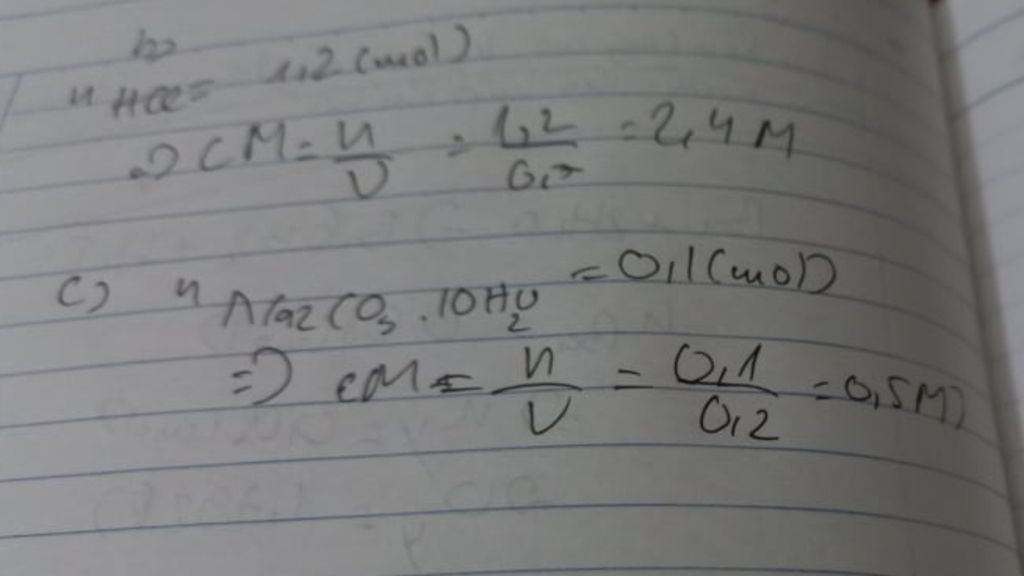 b)
n HCl = 1,2 (mol)
=> CM = n/V = 1,2/0,5 = 2,4 M
c) n Na2CO3 . 10H2O = 0,1 (mol)
=> CM = n/V = 0,1/0,2 = 0,5M)